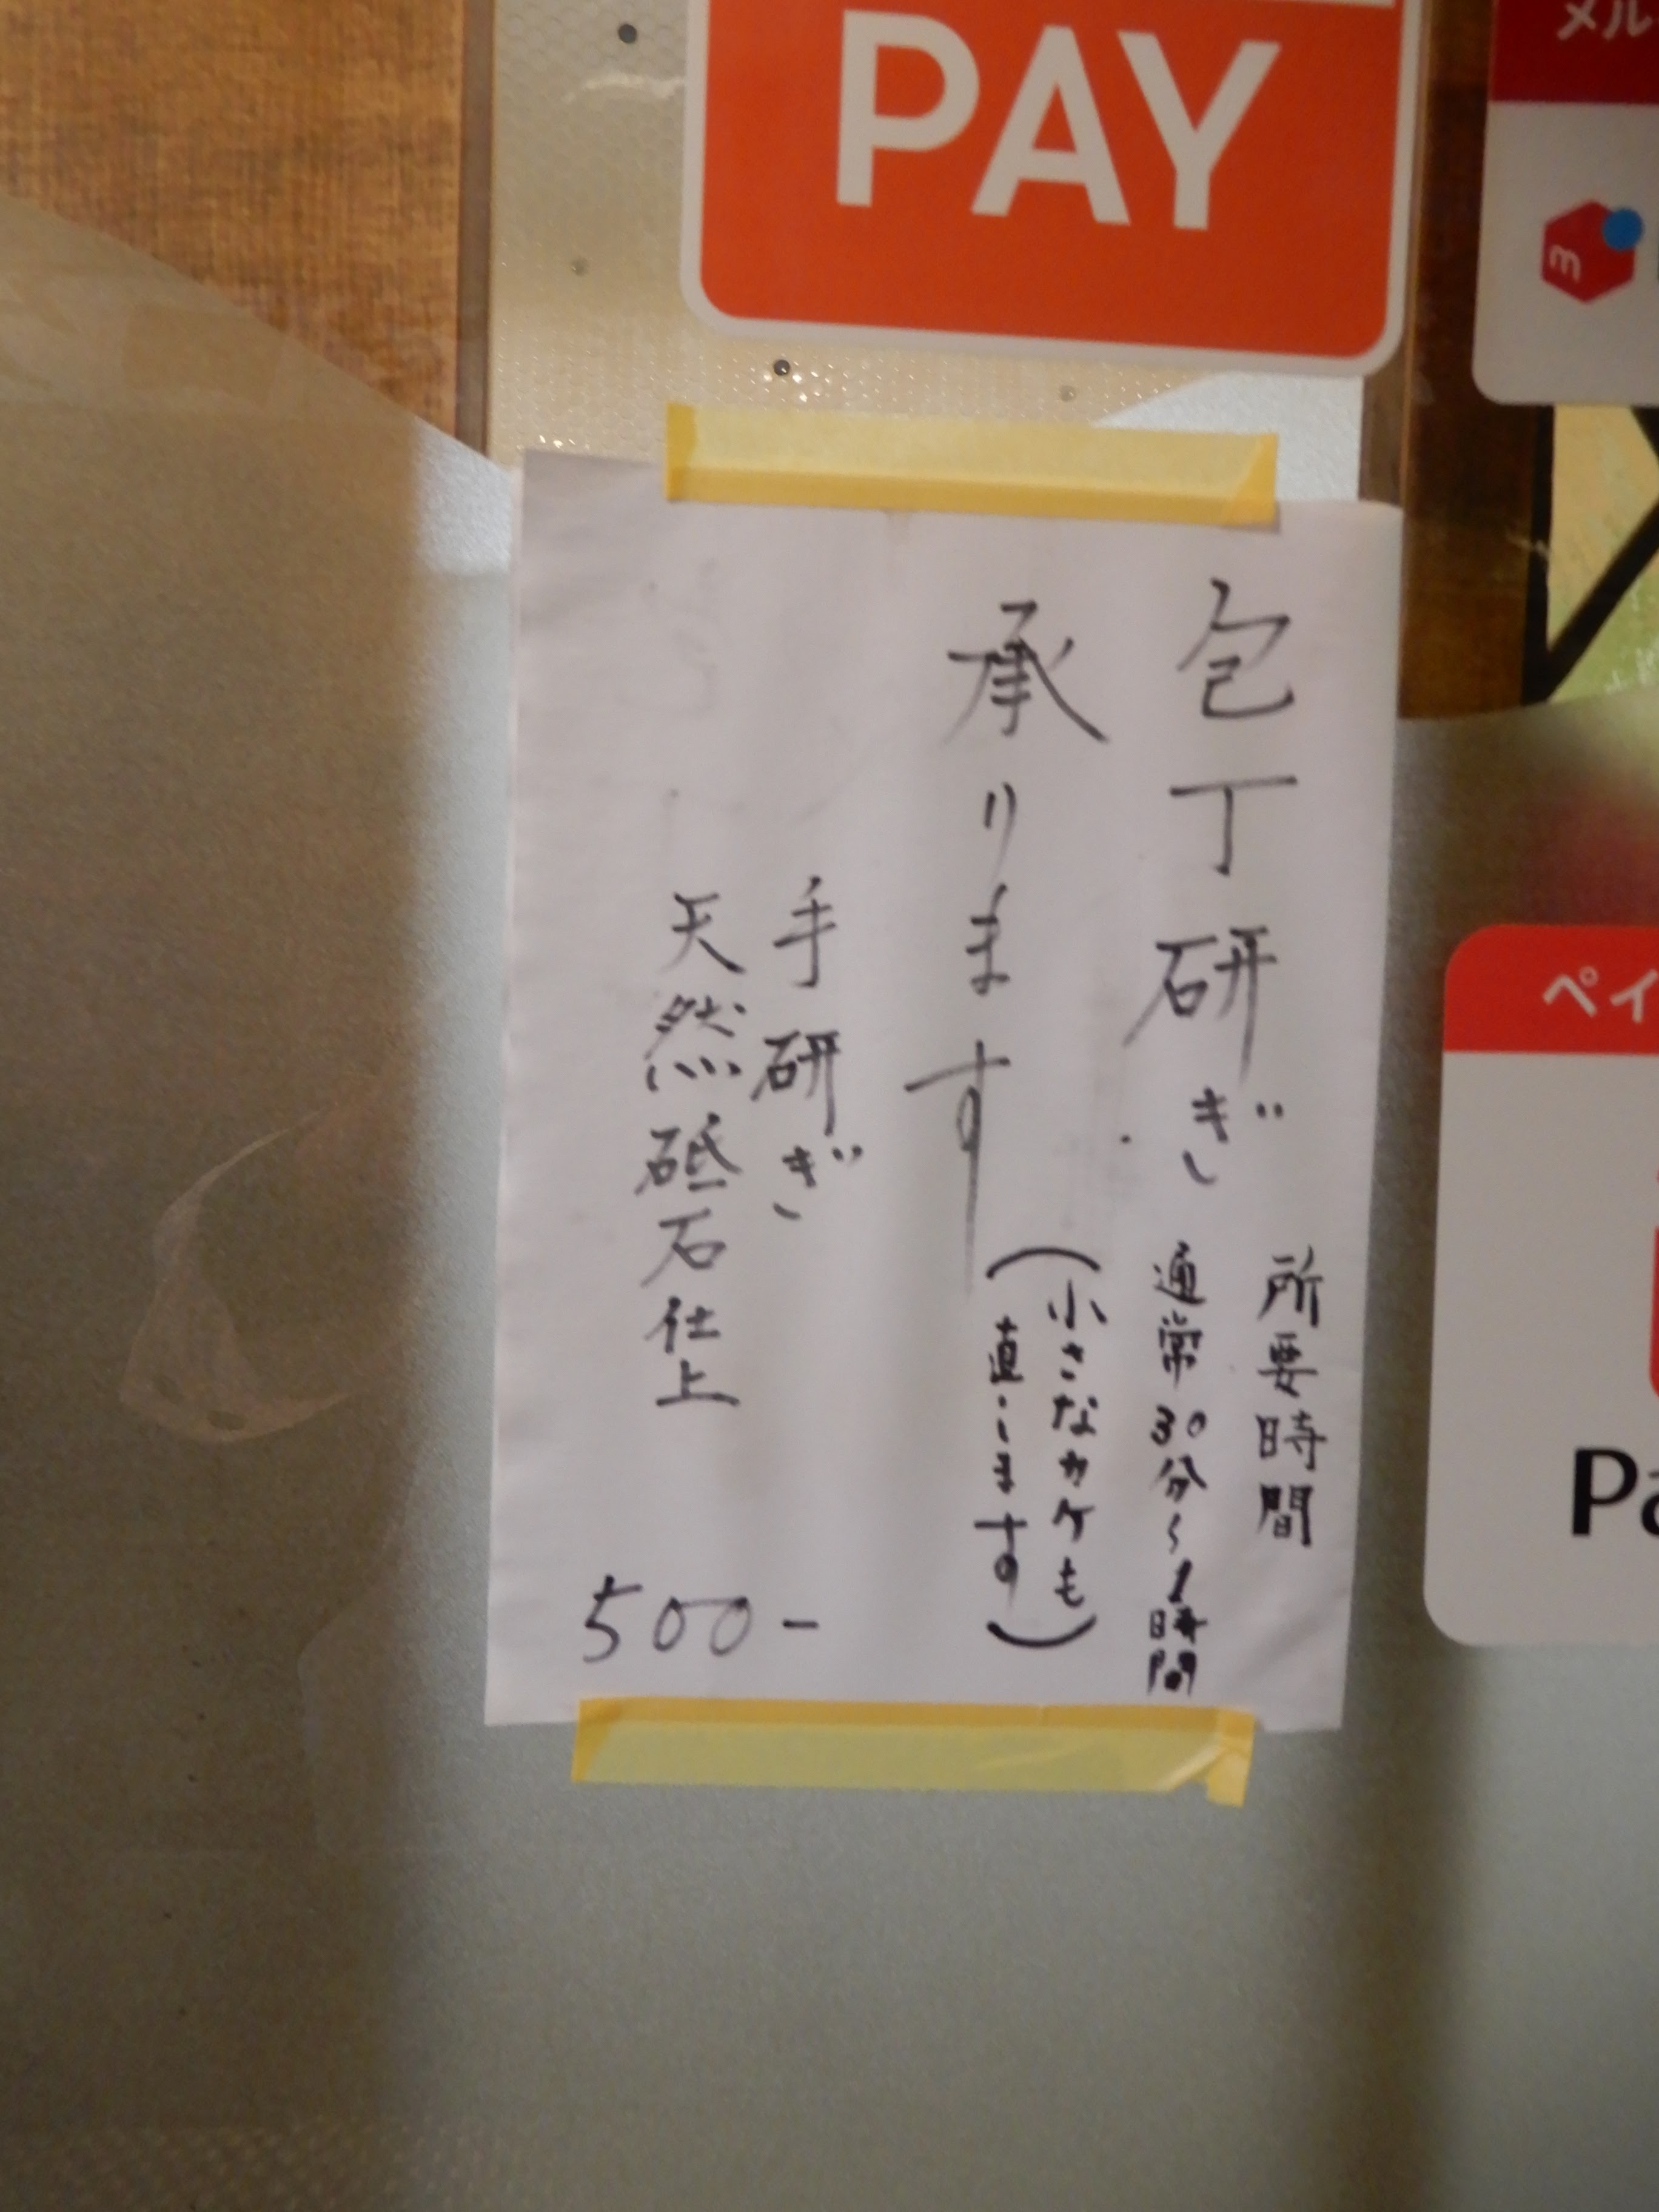 PAY
メル
m
包丁研ぎ
承ります
所要時間
通常30分~1時間
(小さなカケも
直します)
手研ぎ
天然砥石仕上
500-
ペイ
Pa